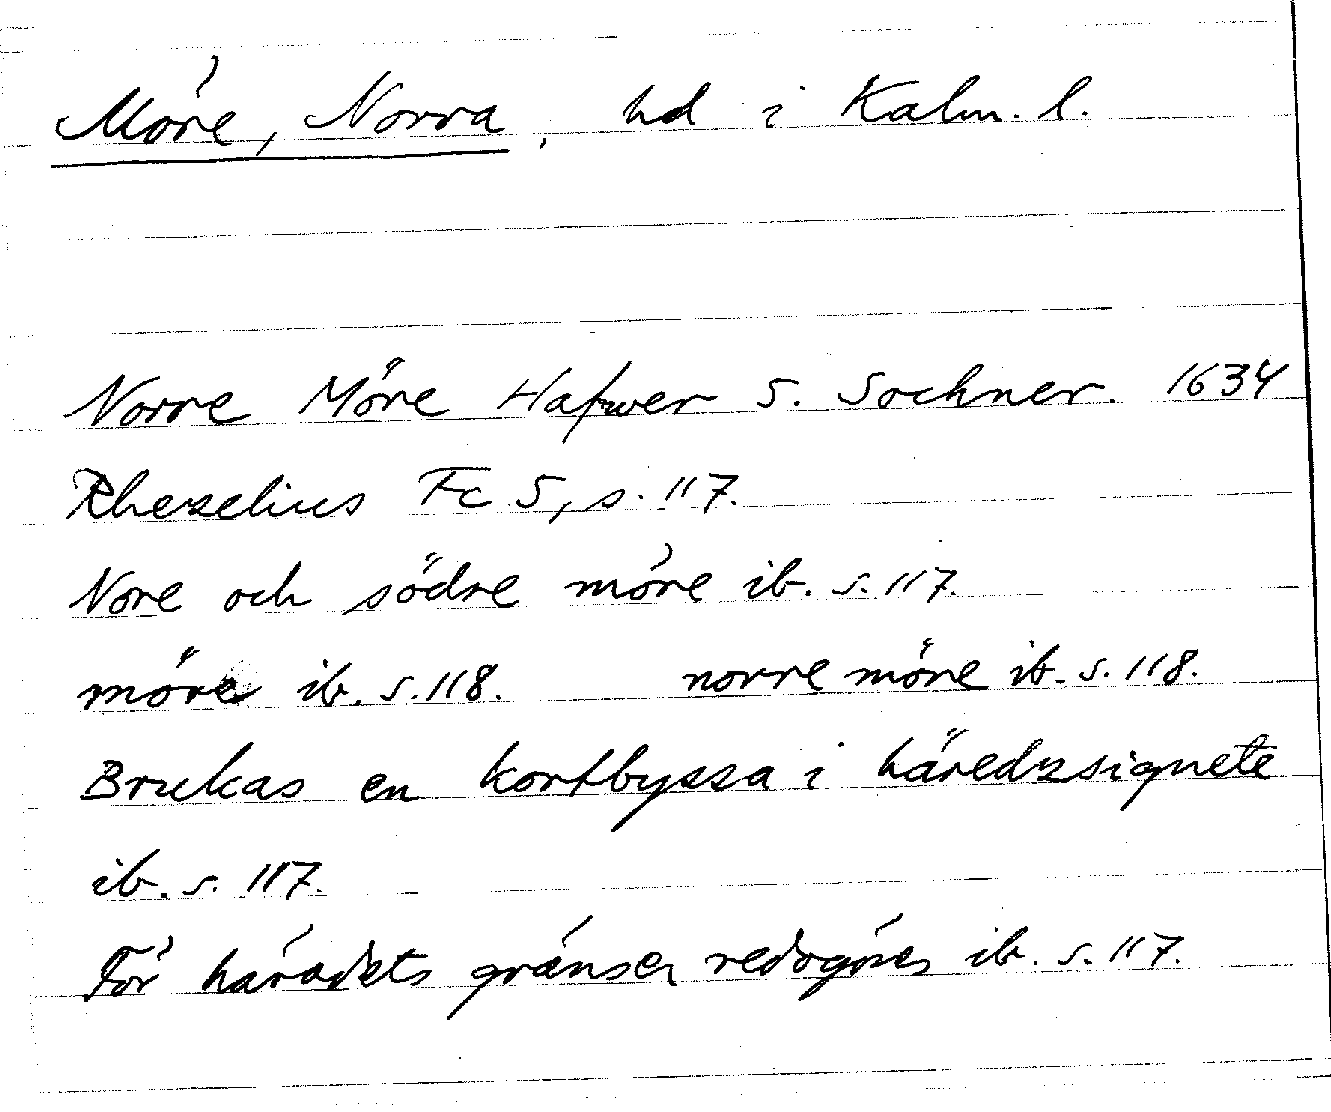 Möre, Norra, hd i Kalm. l.
Norre Möre Hafwer 5. Sochner. 1634
Rhezelius Fc 5, s. 117.
Nore och södre möre ib. s. 117.
möre ib. s. 118. norre möre ib. s. 118.
Brukas en kortbyssa i häredzsignete
ib. s. 117.
För häradets gränser redogöres ib. s. 117.